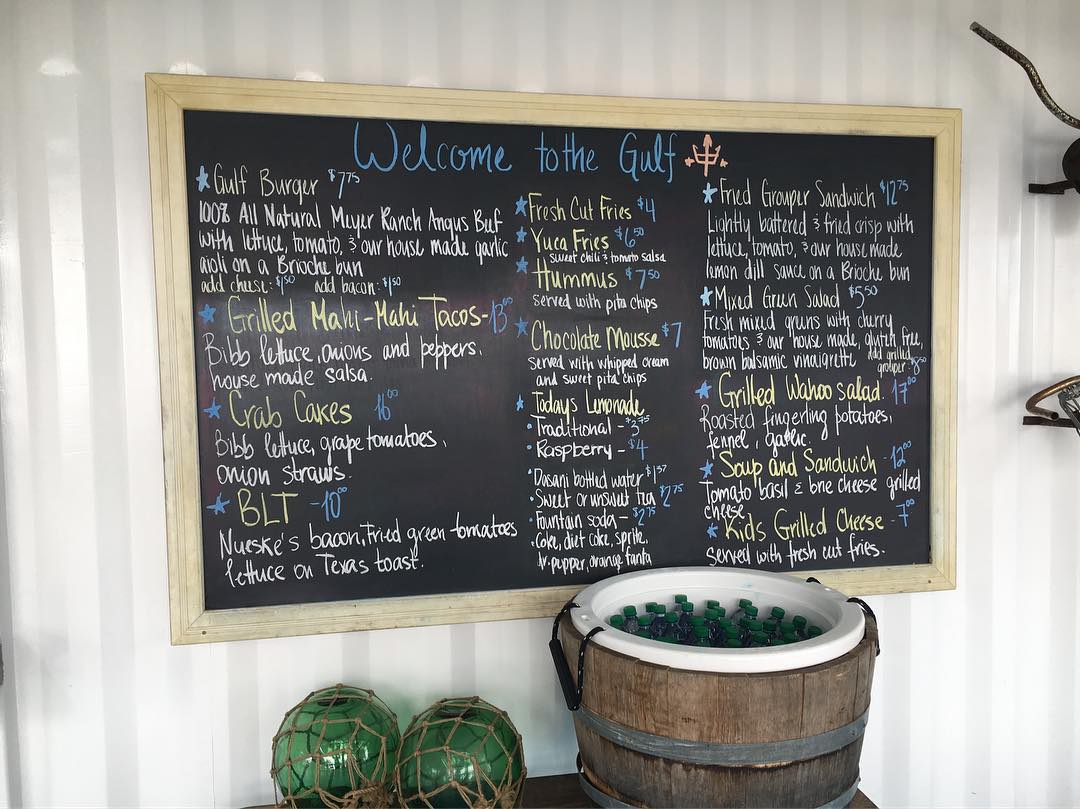 Welcome to the Gulf
Gulf Burger $7.75
100% All Natural Meyer Ranch Angus Beef
with lettuce, tomato, & our house made garlic
aioli on a Brioche bun
add cheese: $1.50 add bacon: $1.50
Grilled Mahi-Mahi Tacos - 13.00
Bibb lettuce, onions and peppers.
house made salsa.
Crab Cakes 16.00
Bibb lettuce, grape tomatoes,
onion straws.
BLT - 10.00
Nueske's bacon, fried green tomatoes
lettuce on Texas toast.
Fresh Cut Fries $4
Yuca Fries $6.50
sweet chili & tomato salsa
Hummus $7.50
served with pita chips
Chocolate Mousse $7
served with whipped cream
and sweet pita chips
Todays Lemonade
Traditional - $3.75
Raspberry - $4
Dasani bottled water $1.37
Sweet or unsweet tea $2.75
Fountain soda - $2.75
coke, diet coke, sprite,
dr. pepper, orange fanta
Fried Grouper Sandwich $12.75
Lightly battered & fried crisp with
lettuce, tomato, & our house made
lemon dill sauce on a Brioche bun
Mixed Green Salad $5.50
Fresh mixed greens with cherry
tomatoes & our house made, gluten free,
brown balsamic vinaigrette add grilled
grouper $8.50
Grilled Wahoo salad. 17.00
Roasted fingerling potatoes,
fennel, garlic.
Soup and Sandwich - 12.00
Tomato basil & brie cheese grilled
cheese.
Kids Grilled Cheese - 7.00
served with fresh cut fries.